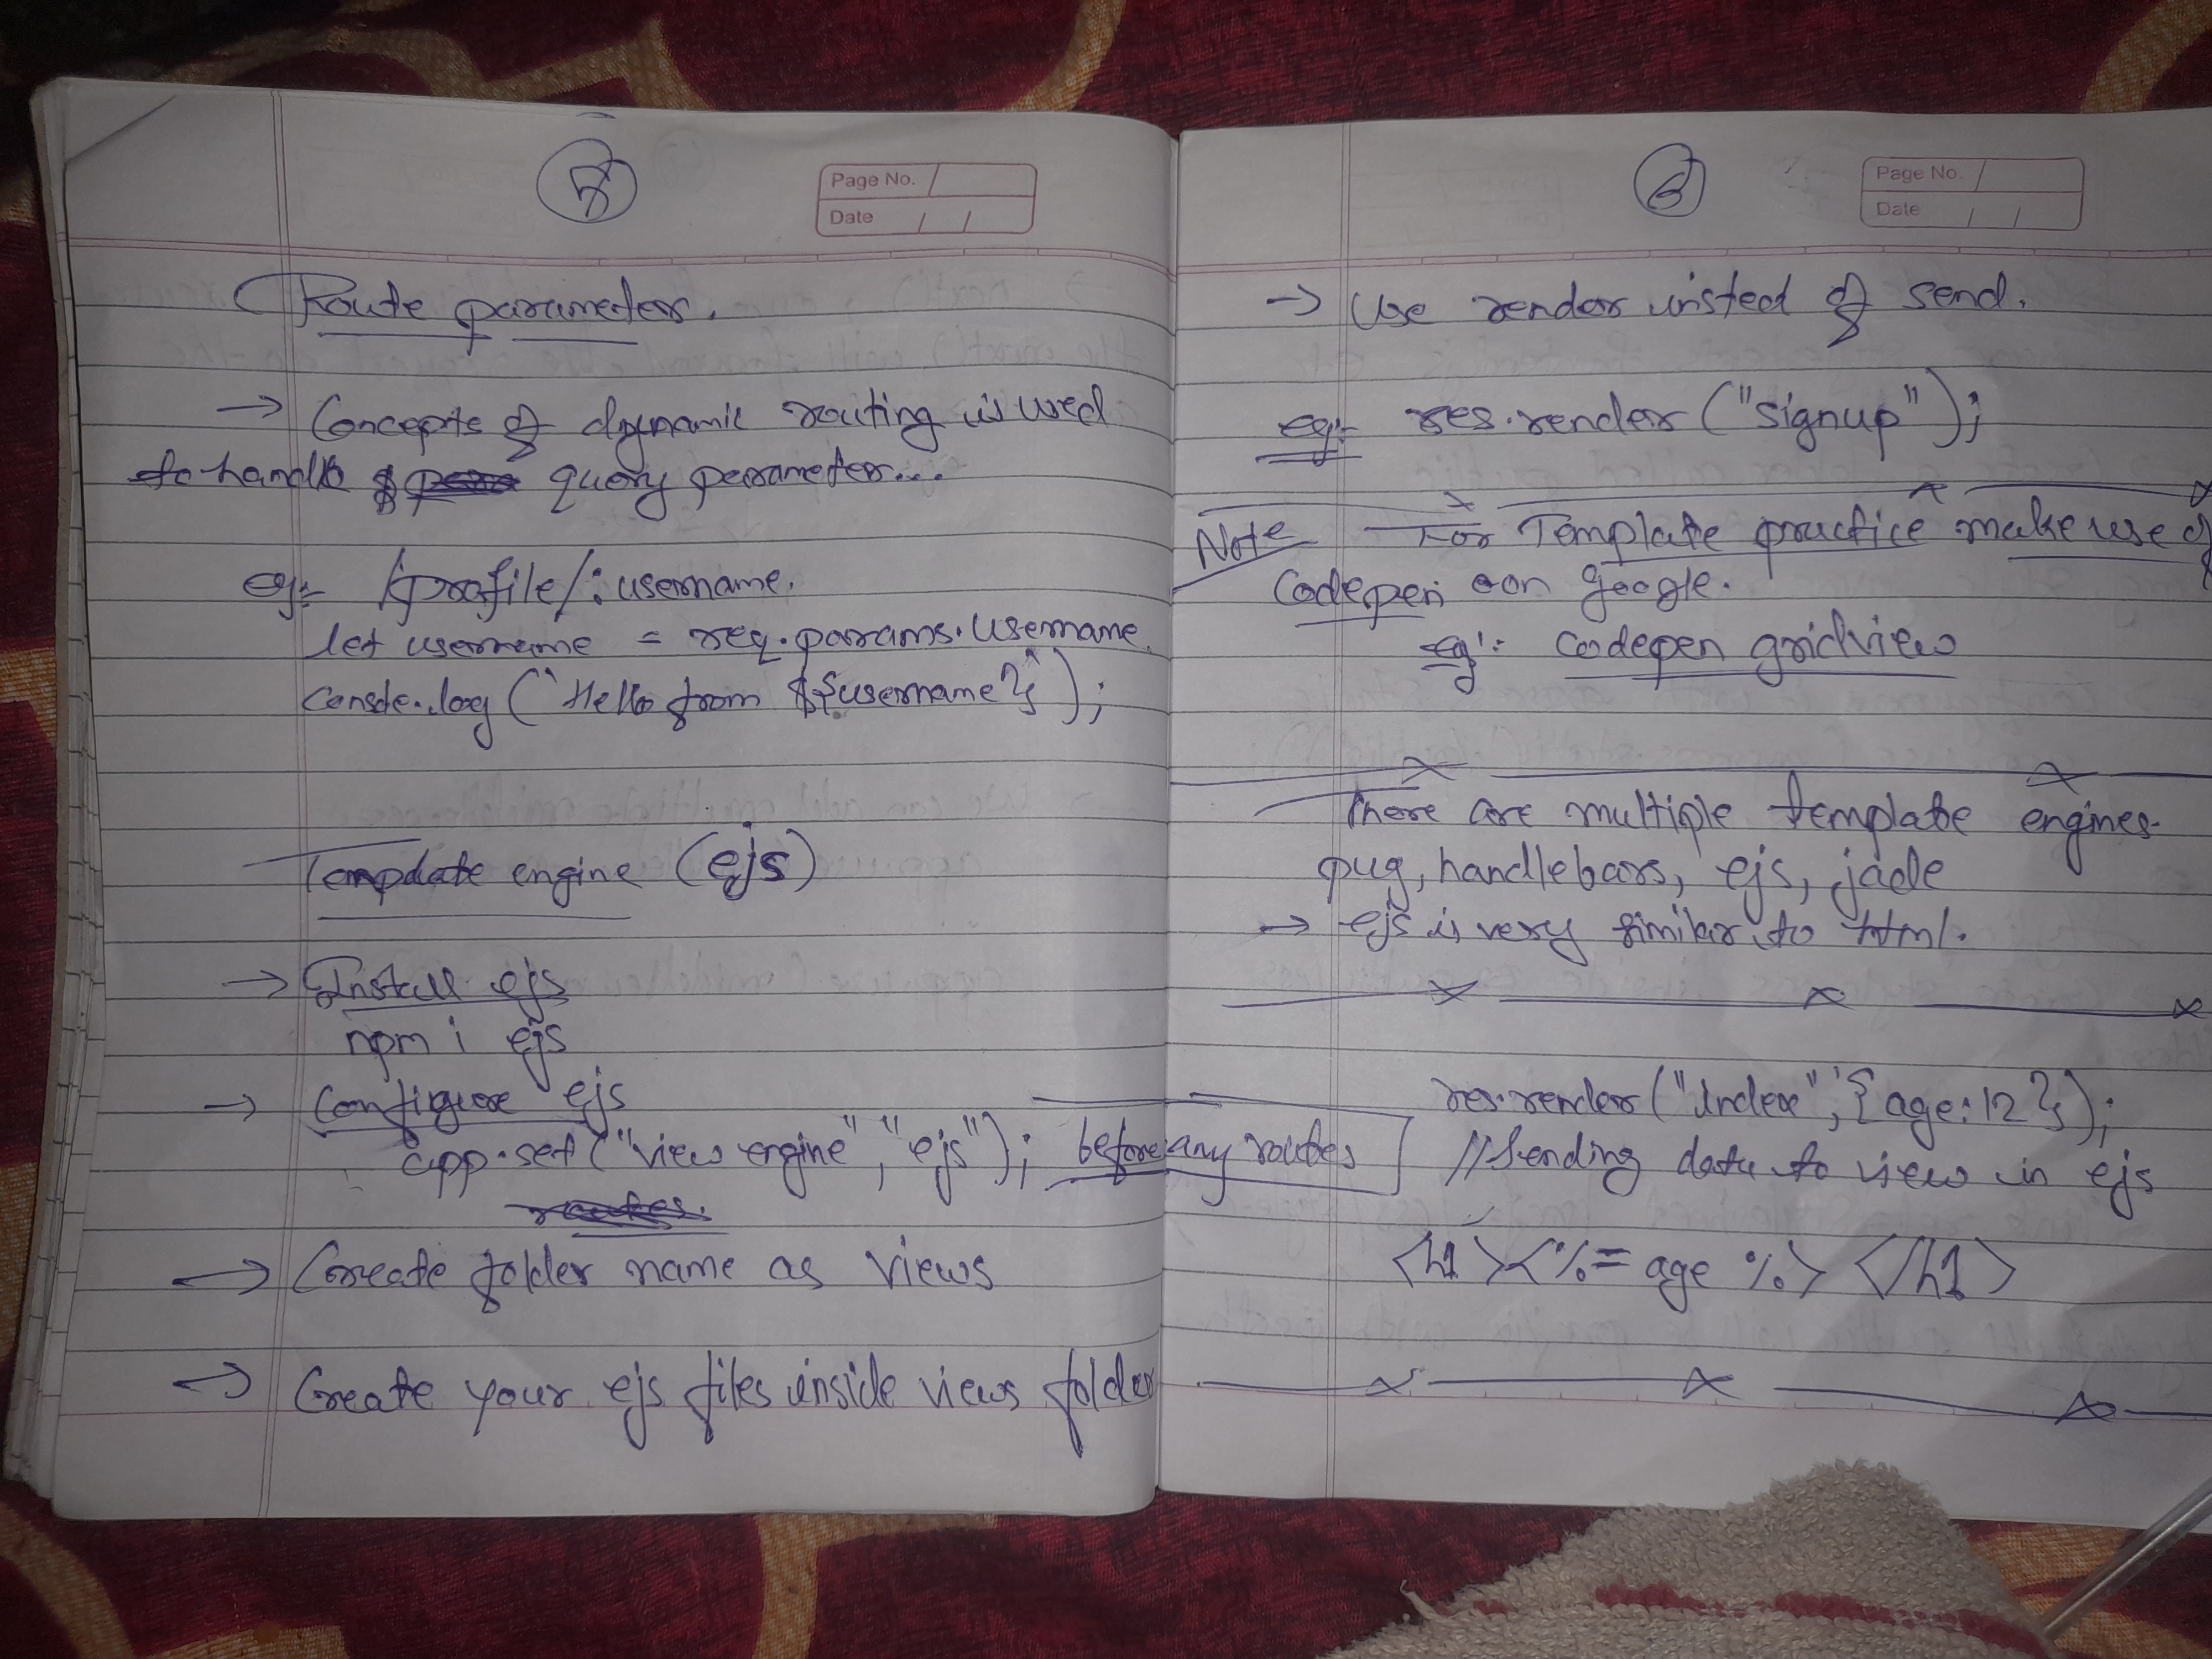 5
Page No.
Date / /
Route parameter.
→ Concepts of dynamic routing is used
to handle query parameter...
eg:- /profile/:username.
let username = req.params.username.
console.log(`Hello from ${username}`);
Template engine (ejs)
→ Install ejs
npm i ejs
→ Configure ejs
app.set("view engine", "ejs"); before any routes
routes.
→ Create folder name as views
→ Create your ejs files inside views folder
6
Page No.
Date / /
→ Use render insted of send.
eg:- res.render("signup");
Note For Template practice make use of
Codepen on google.
eg:- codepen gridview
There are multiple template engines.
pug, handlebars, ejs, jade
→ ejs is very similar to html.
res.render("index", {age:12});
//Sending data to view in ejs
<h1><%= age %></h1>